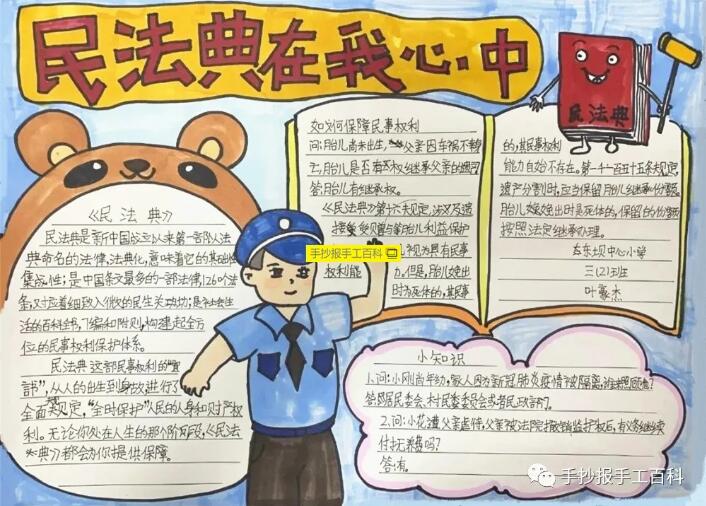 民法典在我心中
民法典
《民法典》
民法典是新中国成立以来第一部以法
典命名的法律,法典化,意味着它的基础性
集成性;是中国条文最多的一部法律,1260个条
条,对应着细致入微的民生关切;是社会生
活的百科全书,7编和附则,构建起全方
位的民事权利保护体系。
民法典这部民事权利的“宣
言书”,从人的出生到身故进行了
全面规定,“全时保护”人民的人身和财产权
利。无论你处在人生的那个阶段,《民法
典》都会为你提供保障。
如何保障民事权利
问:胎儿尚未出生,父亲因车祸不幸
去,胎儿是否有权继承父亲的
答:胎儿有继承权。
《民法典》第十六规定,涉及遗
接受赠与等胎儿利益保护
视为具有民事
权利能
力。但是,胎儿娩出
时为死体的,其民事
的,其民事权利
能力自始不存在。第一千一百五十五条规定,
遗产分割时,应当保留胎儿继承份额。
胎儿娩出时是死体的,保留的份额
按照法定继承办理。
东坝中心小学
三(2)班
叶豪杰
小知识
1.问:小刚尚年幼,家人因为新冠肺炎疫情被隔离,谁照顾他?
答:居民委会、村民委员会或者民政部门。
2.问:小花遭父亲虐待,父亲被法院撤销监护权后,有义务继续
付抚养费吗?
答:有。
手抄报手工百科
手抄报手工百科